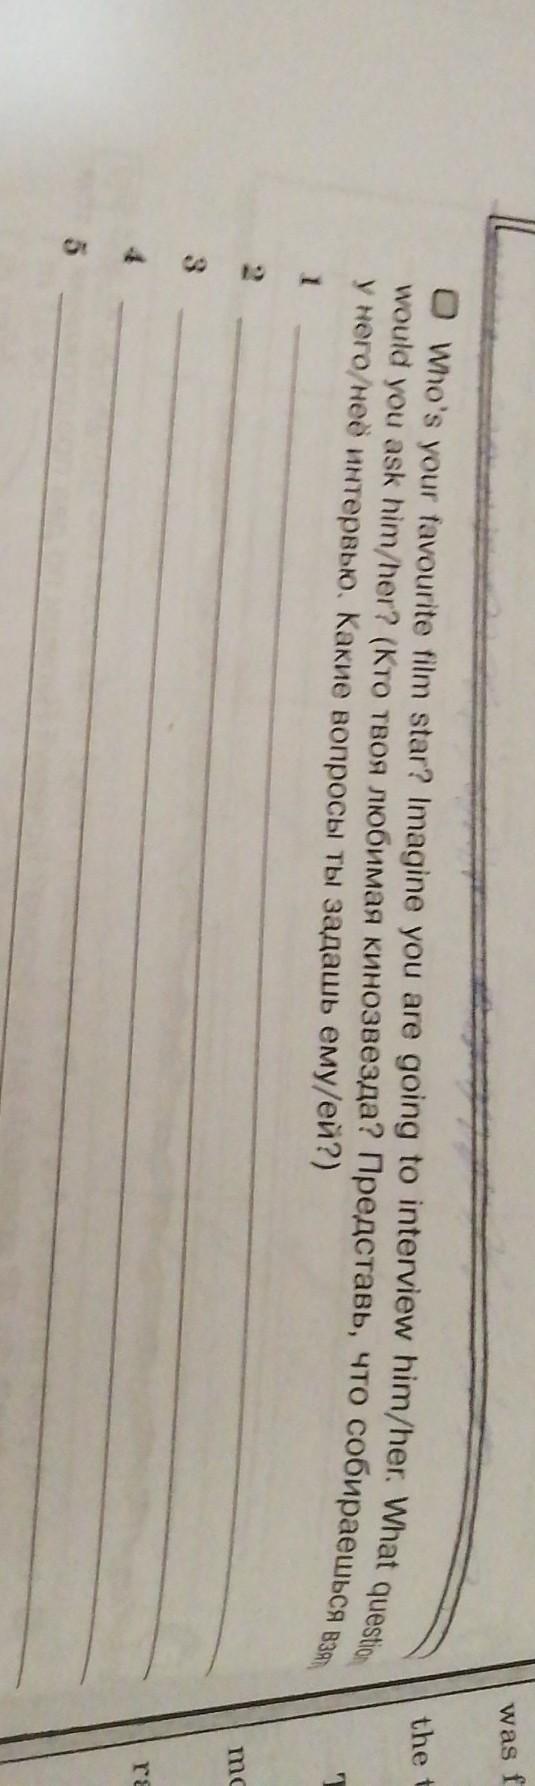 Who's your favourite film star? Imagine you are going to interview him/her. What
would you ask him/her? (Кто твоя любимая кинозвезда? Представь, что собираешься
у него/неё интервью. Какие вопросы ты задашь ему/ей?)
1
2
3
4
5
was f
the t
T
mo
ra